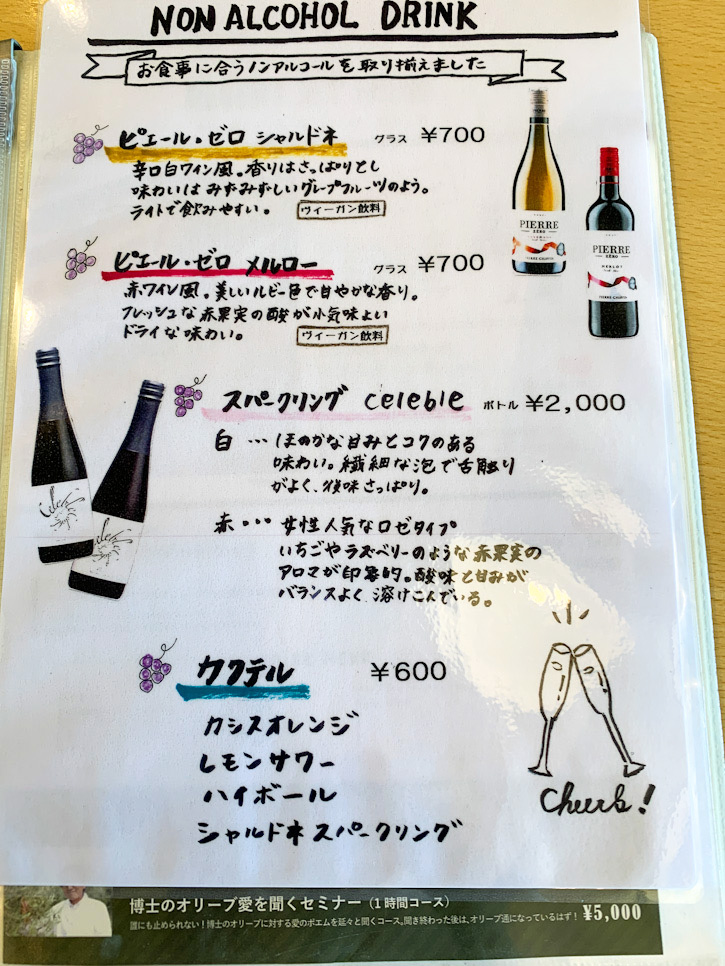 NON ALCOHOL DRINK
お食事に合うノンアルコールを取り揃えました
ピエール・ゼロ シャルドネ グラス ¥700
辛口白ワイン風。香りはさっぱりとし
味わいは みずみずしいグレープフルーツのよう。
ライトで飲みやすい。 ヴィーガン飲料
ピエール・ゼロ メルロー グラス ¥700
赤ワイン風。美しいルビー色で甘やかな香り。
フレッシュな赤果実の酸が小気味よい
ドライな味わい。 ヴィーガン飲料
PIERRE
ZÉRO
PIERRE
ZÉRO
MERLOT
スパークリング celeble ボトル ¥2,000
白 … ほのかな甘みとコクのある
味わい。繊細な泡で舌触り
がよく、後味さっぱり。
赤… 女性人気なロゼタイプ
いちごやラズベリーのような赤果実の
アロマが印象的。酸味と甘みが
バランスよく溶けこんでいる。
カクテル ¥600
カシスオレンジ
レモンサワー
ハイボール
シャルドネスパークリング
Cheers!
博士のオリーブ愛を聞くセミナー(1時間コース)
誰にも止められない!博士のオリーブに対する愛のポエムを延々と聞くコース。聞き終わった後は、オリーブ通になっているはず! ¥5,000